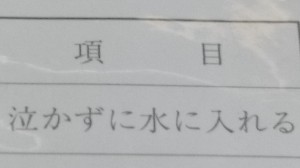 項　　目
泣かずに水に入れる